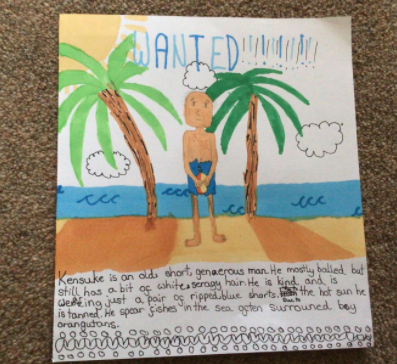 WANTED!!!!!!!!!!!!
Kensuke is an old, short, generous man. He mostly balled but
still has a bit of white, scragy hair. He is kind and is
weering just a pair of ripped blue shorts. Due to the hot sun he
is tanned. He spear fishes in the sea often surrowned bey
orangutans.